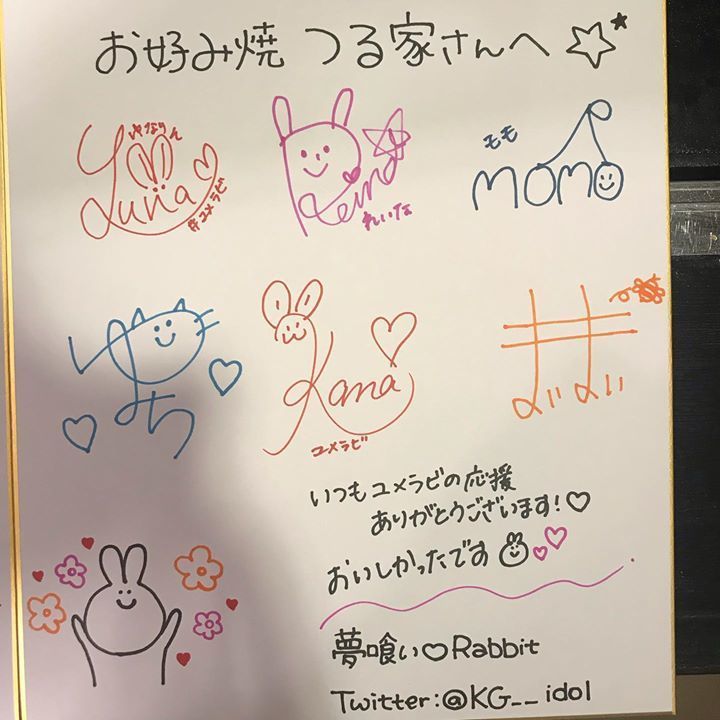 お好み焼 つる家さんへ
ゆなりん
Yuna
#ユメラビ
Reina
れいな
モモ
momo
ゆめち
Kana
ユメラビ
いつもユメラビの応援
ありがとうございます!♡
おいしかったです
夢喰い♡Rabbit
Twitter:@KG__idol